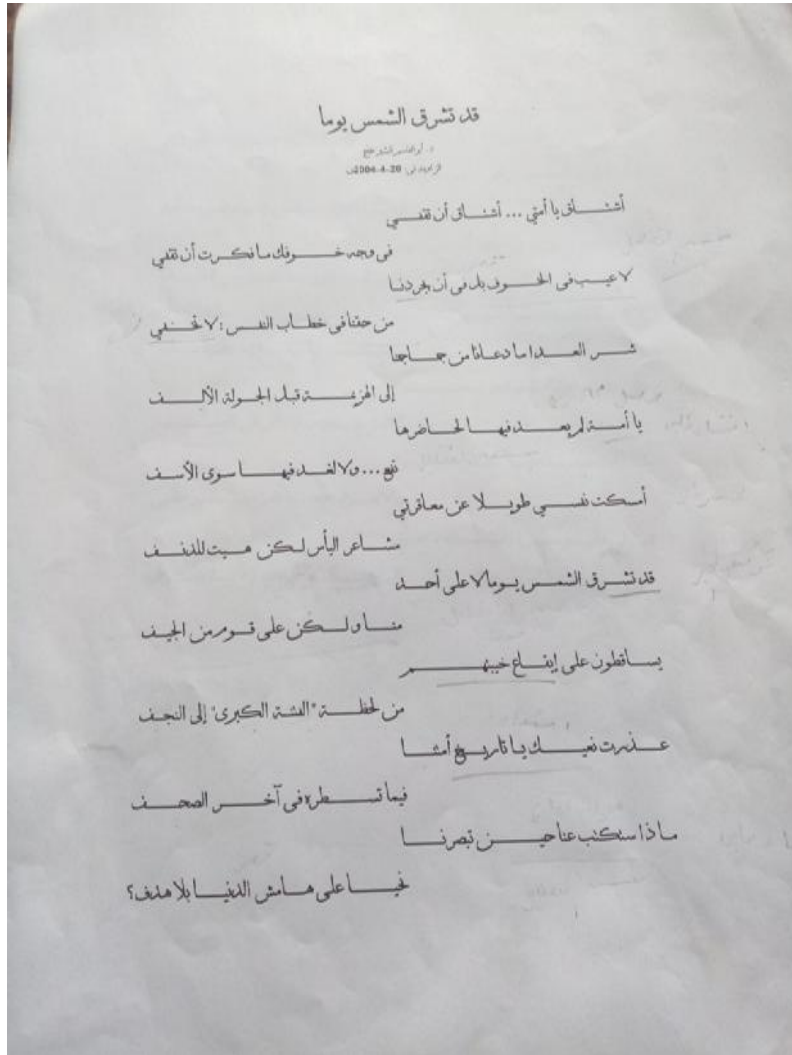 قد تشرق الشمس يوما
د. أبو القاسم
في 20-4-2004
أشتاق يا أمتي ... أشتاق أن تقفي
في وجه خوفك ما فكرت أن تقفي
لا عيب في الخوف بل في أن يجردنا
من حقنا في خطاب النفس : لا تخفي
شر العدا ما دعانا من جماجما
إلى الهزيمة قبل الجولة الألف
يا أمة لم يعد فيها لحاضرها
نفع ... ولا لغد فيها سوى الأسف
أمسكت نفسي طويلا عن معاقرتي
مشاعر اليأس لكن هبت للدنف
قد تشرق الشمس يوما لا على أحد
منا ولكن على قوم من الجيف
يساقطون على إيقاع خيبتهم
من لحظة "الفتنة الكبرى" إلى النجف
عذرت نعيك يا تاريخ أمتنا
فيما تسطره في آخر الصحف
ماذا ستكتب عنا حين تبصرنا
نحيا على هامش الدنيا بلا هدف؟